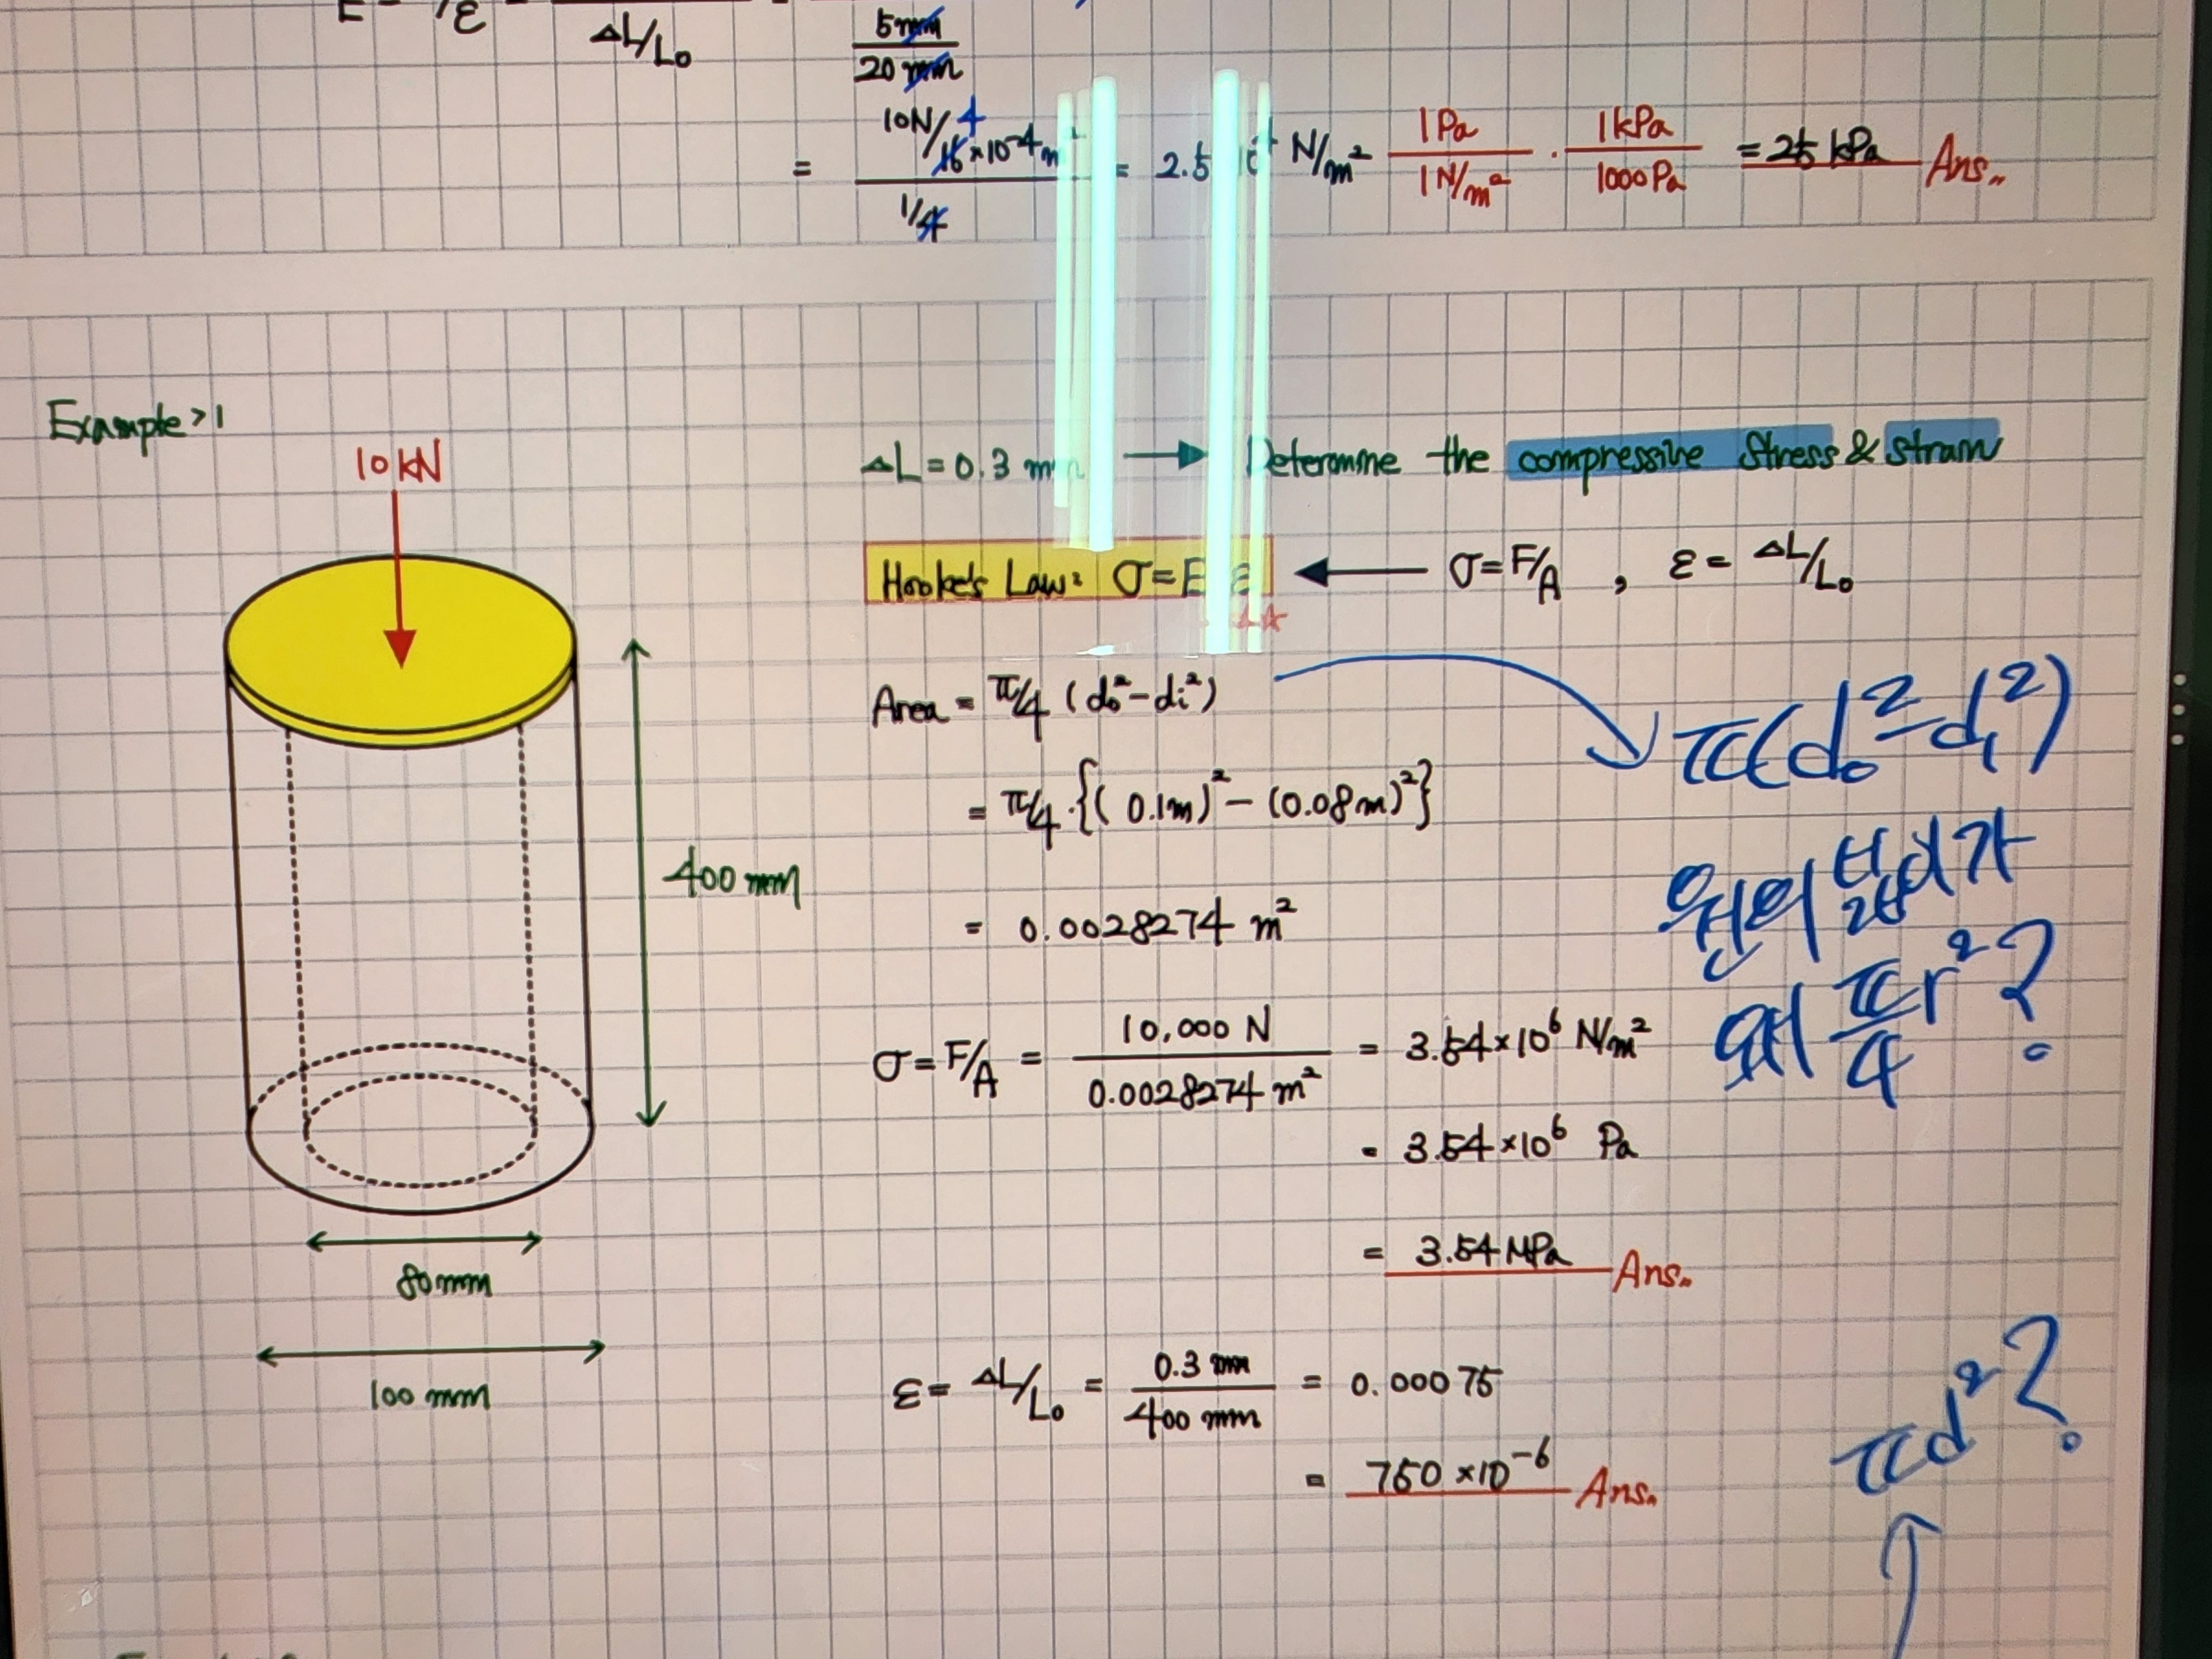 ΔL/L₀
5mm
20mm
10N/16×10⁻⁴m 4
= = 2.5 N/m² 1Pa/1N/m² · 1kPa/1000Pa = 25 kPa Ans..
1/4
Example>1
10kN
ΔL = 0.3 mm → Determine the compressive Stress & strain
Hooke's Law: σ=Eε ← σ=F/A , ε= ΔL/L₀
Area = π/4 (d₀²-di²)
π(d₀²-d₁²)
= π/4·{(0.1m)²-(0.08m)²}
400 mm
= 0.0028274 m²
원의 넓이가
왜 πr²/4?
σ=F/A = 10,000 N/0.0028274 m² = 3.54×10⁶ N/m²
= 3.54×10⁶ Pa
= 3.54 MPa Ans..
80mm
100 mm
ε= ΔL/L₀ = 0.3 mm/400 mm = 0.00075
= 750×10⁻⁶ Ans..
πd²?